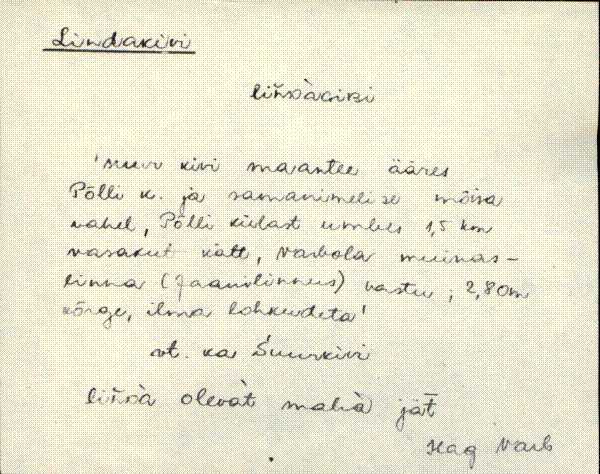 Lindakivi
liǹdàkiβi
'suur kivi maantee ääres
Põlli k. ja samanimelise mõisa
vahel, Põlli külast umbes 1,5 km
vasakut kätt, Varbola muinas-
linna (Jaanilinnus) vastu; 2,80 m
kõrge, ilma lohkudeta'
vt. ka Suurkivi
olevàt mahà jät̄
Hag Varb